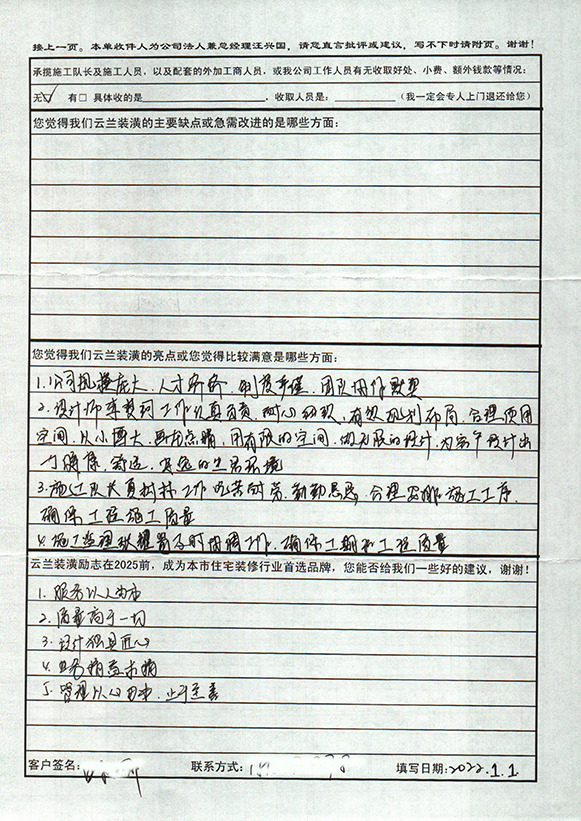 接上一页。本单收件人为公司法人兼总经理汪兴国，请您直言批评或建议，写不下时请附页。谢谢！
承揽施工队长及施工人员，以及配套的外加工商人员，或我公司工作人员有无收取好处、小费、额外钱款等情况：
无☑ 有□ 具体收的是 ，收取人员是： （我一定会专人上门退还给您）
您觉得我们云兰装潢的主要缺点或急需改进的是哪些方面：
您觉得我们云兰装潢的亮点或您觉得比较满意是哪些方面：
1.公司规模庞大、人才济济、制度严谨、团队协作默契
2.设计师李 工作认真负责，耐心细致，有效规划布局，合理使用
空间，从小图大，画龙点睛，用有限的空间，做无限的设计，为客户设计出
舒适、 的生活环境
3.施工队长夏 林工作吃苦耐劳、勤勤恳恳，合理安排施工工序，
确保工程施工质量
4.施工监理 及时协调工作，确保工期和工程质量
云兰装潢励志在2025前，成为本市住宅装修行业首选品牌，您能否给我们一些好的建议，谢谢！
1.服务以人为本
2.质量高于一切
3.设计独具匠心
4.业务精益求精
5.管理以人为本，止于至善
客户签名： 联系方式： 填写日期：2022.1.1